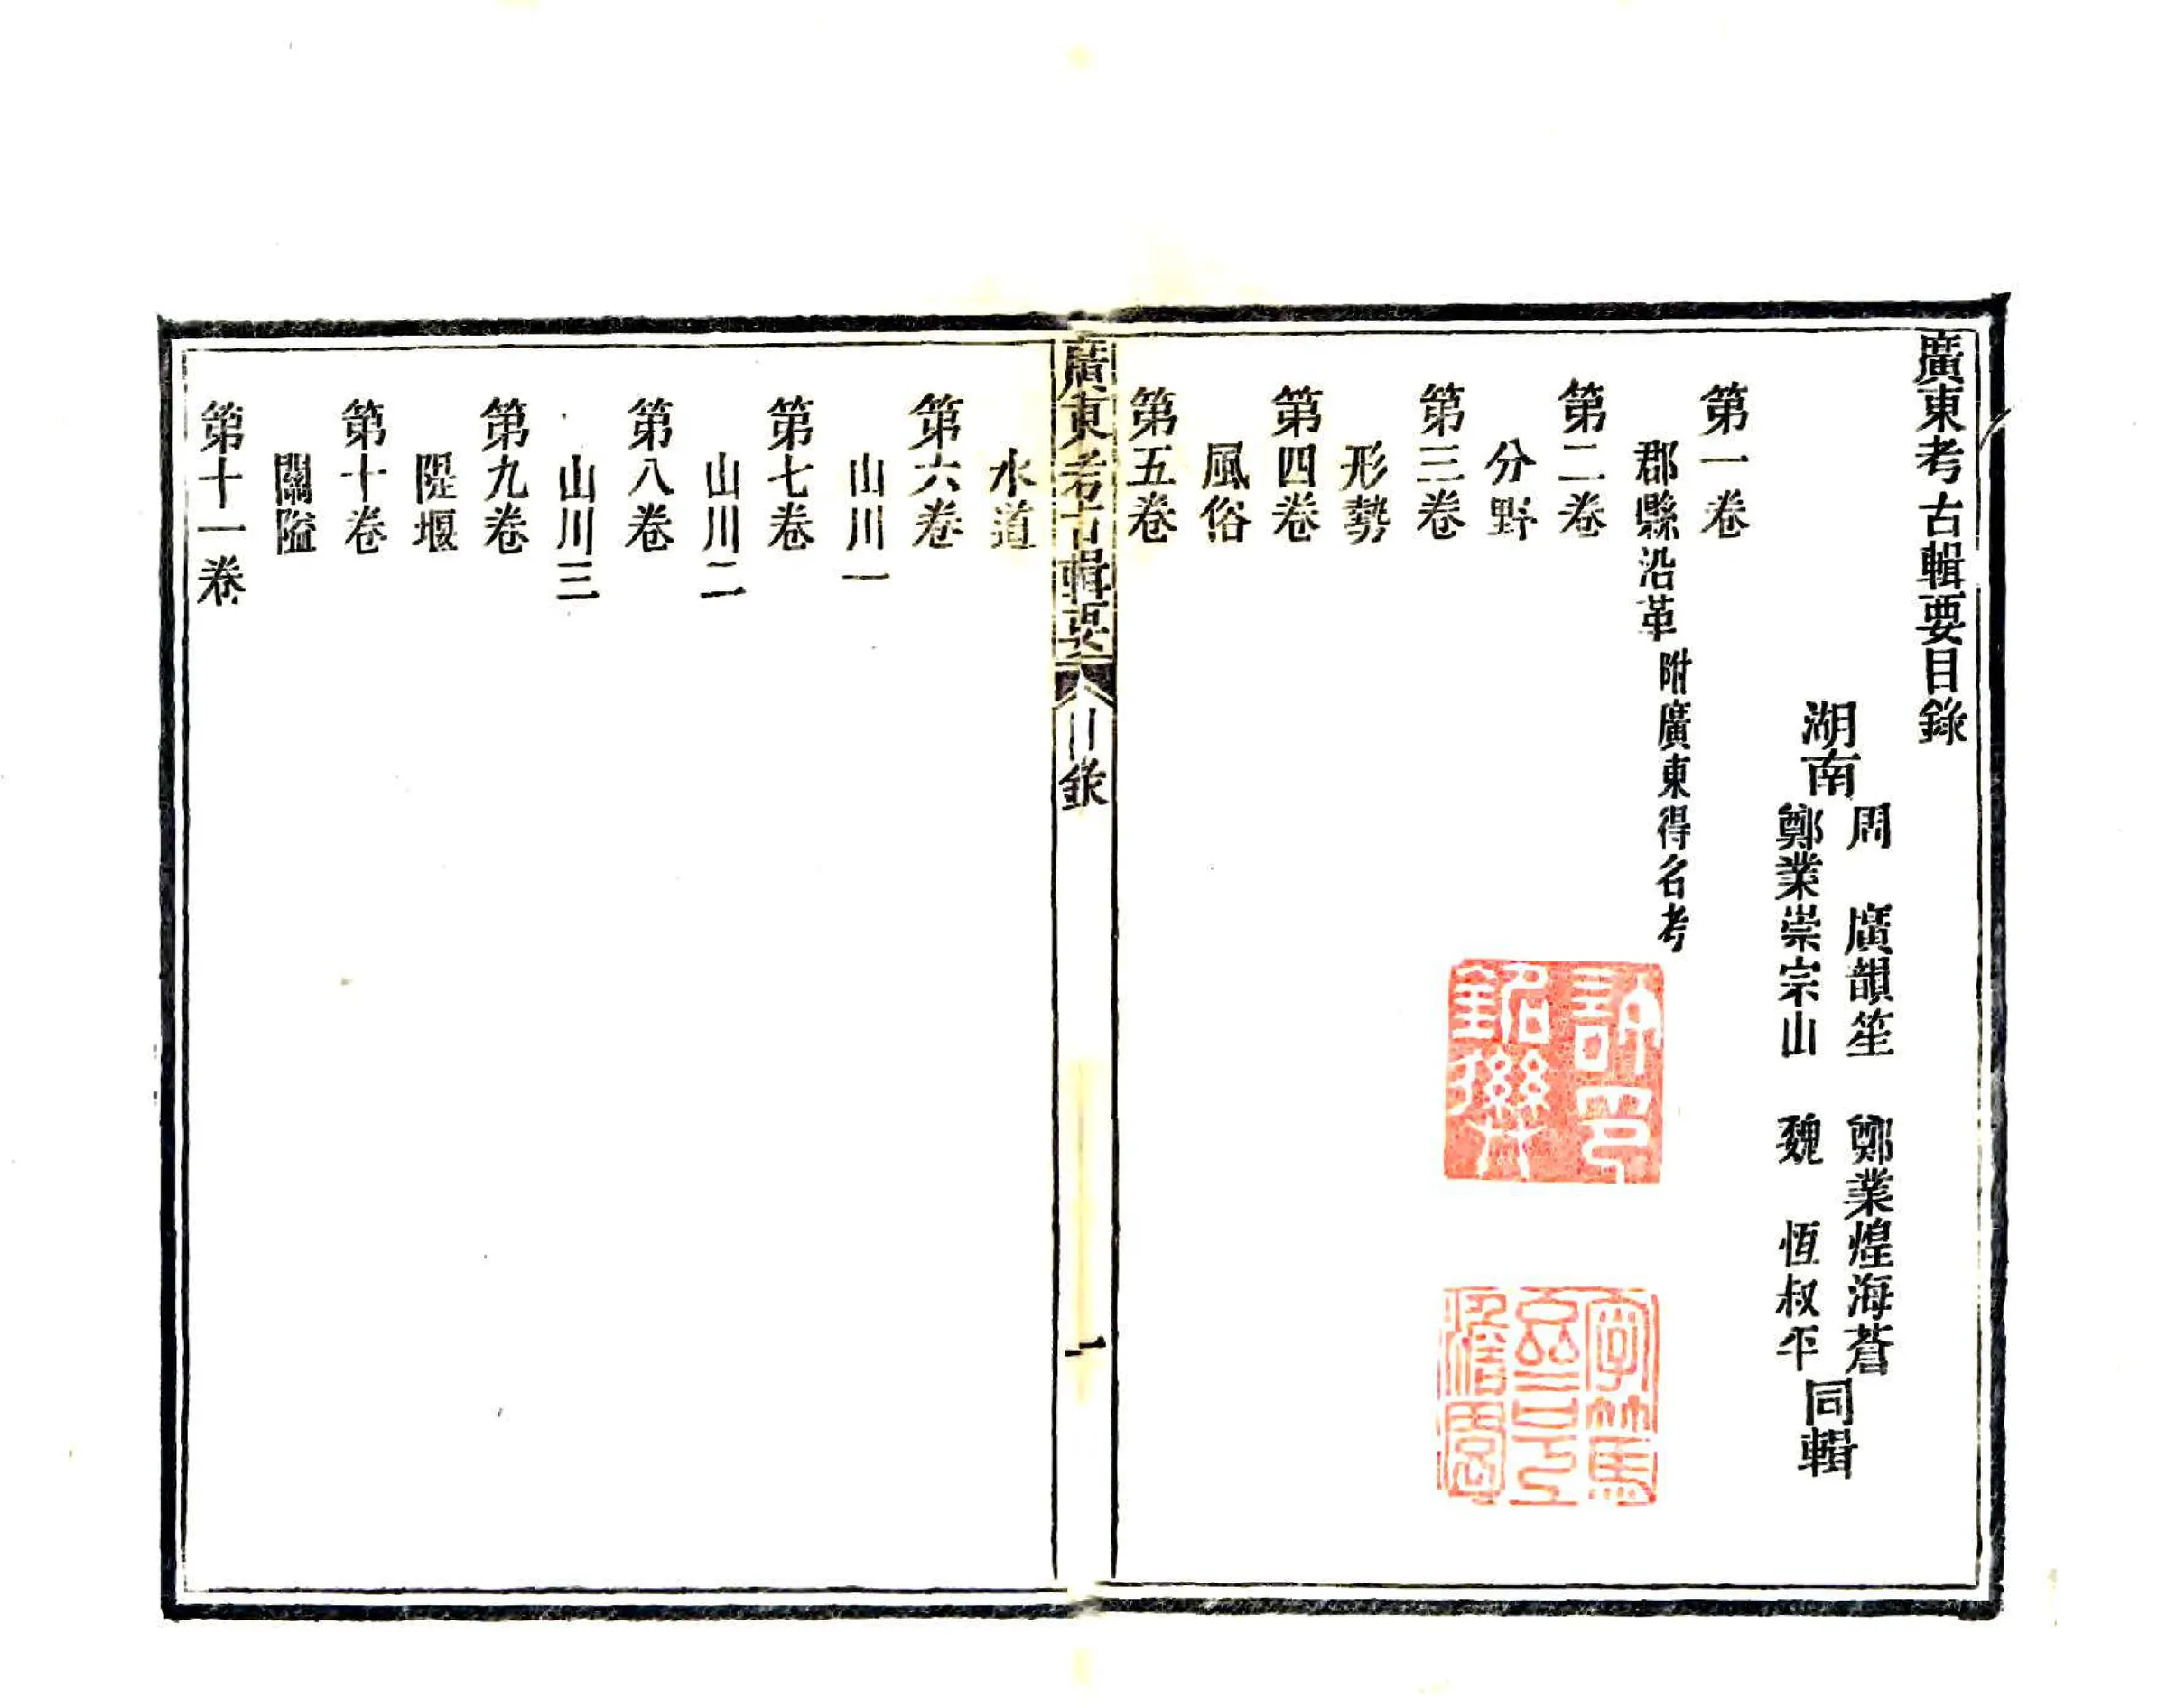 廣東考古輯要目錄
湖南
周　廣韻笙　鄭業煌海蒼
鄭業崇宗山　魏　恆叔平
同輯
第一卷
郡縣沿革 附廣東得名考
第二卷
分野
第三卷
形勢
第四卷
風俗
第五卷
廣東考古輯要 目錄 一
水道
第六卷
山川一
第七卷
山川二
第八卷
山川三
第九卷
隄堰
第十卷
關隘
第十一卷